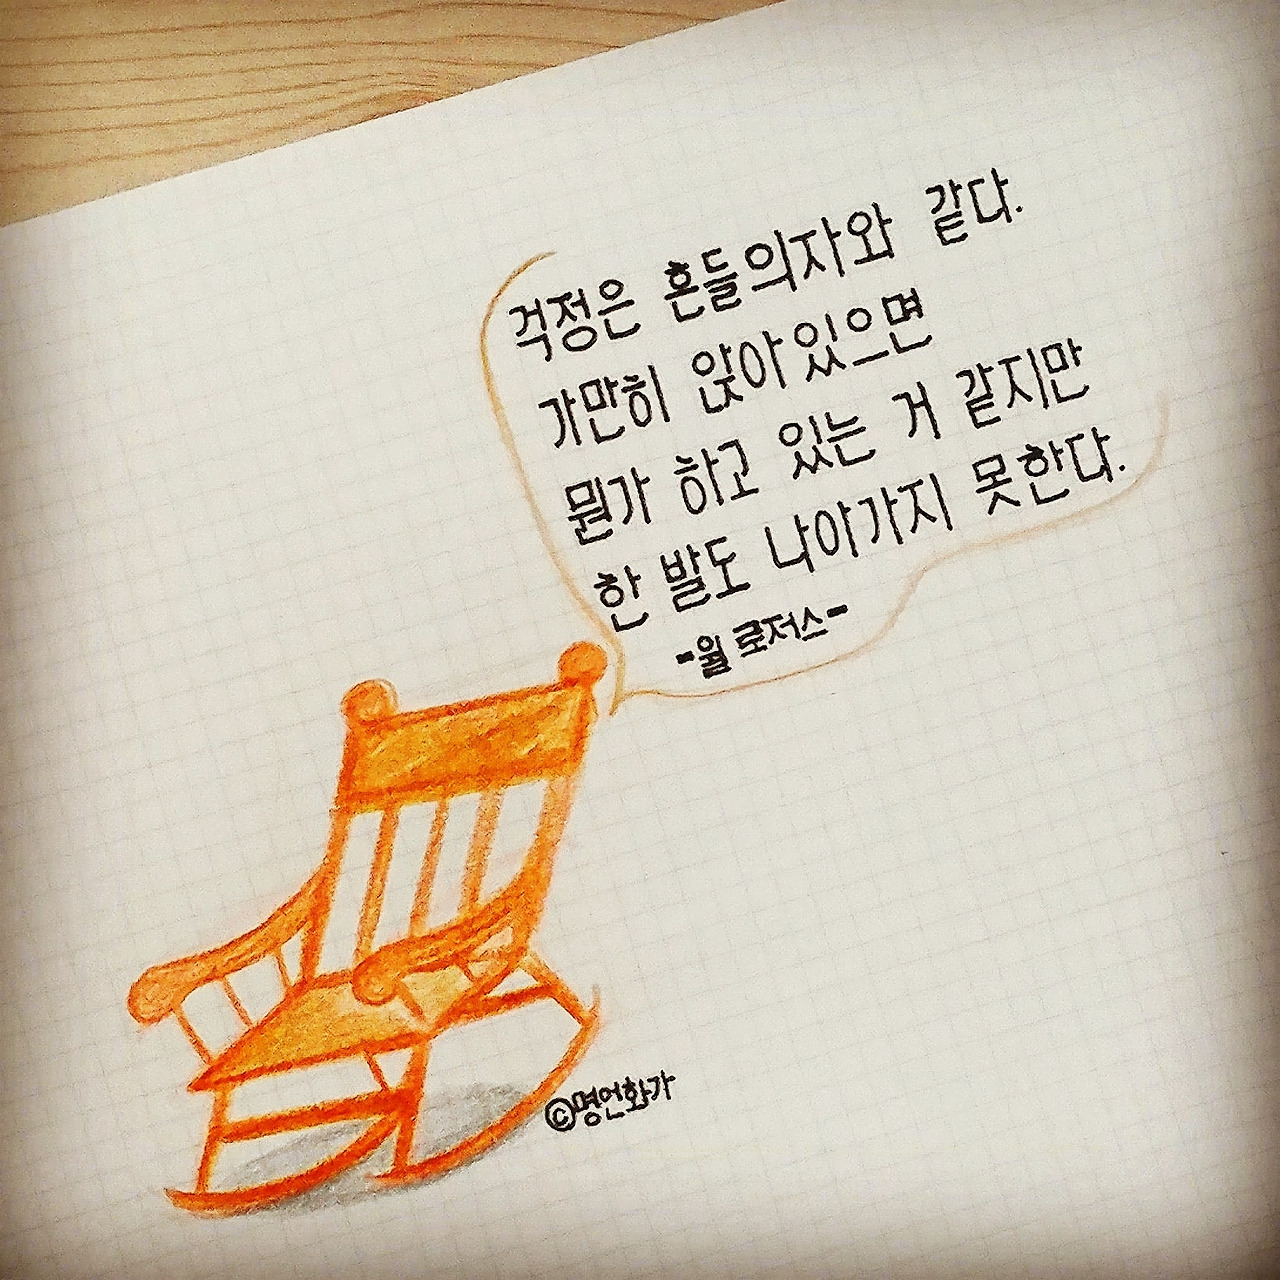 걱정은 흔들의자와 같다.
가만히 앉아있으면
뭔가 하고 있는 거 같지만
한 발도 나아가지 못한다.
-윌 로저스-
©명언화가